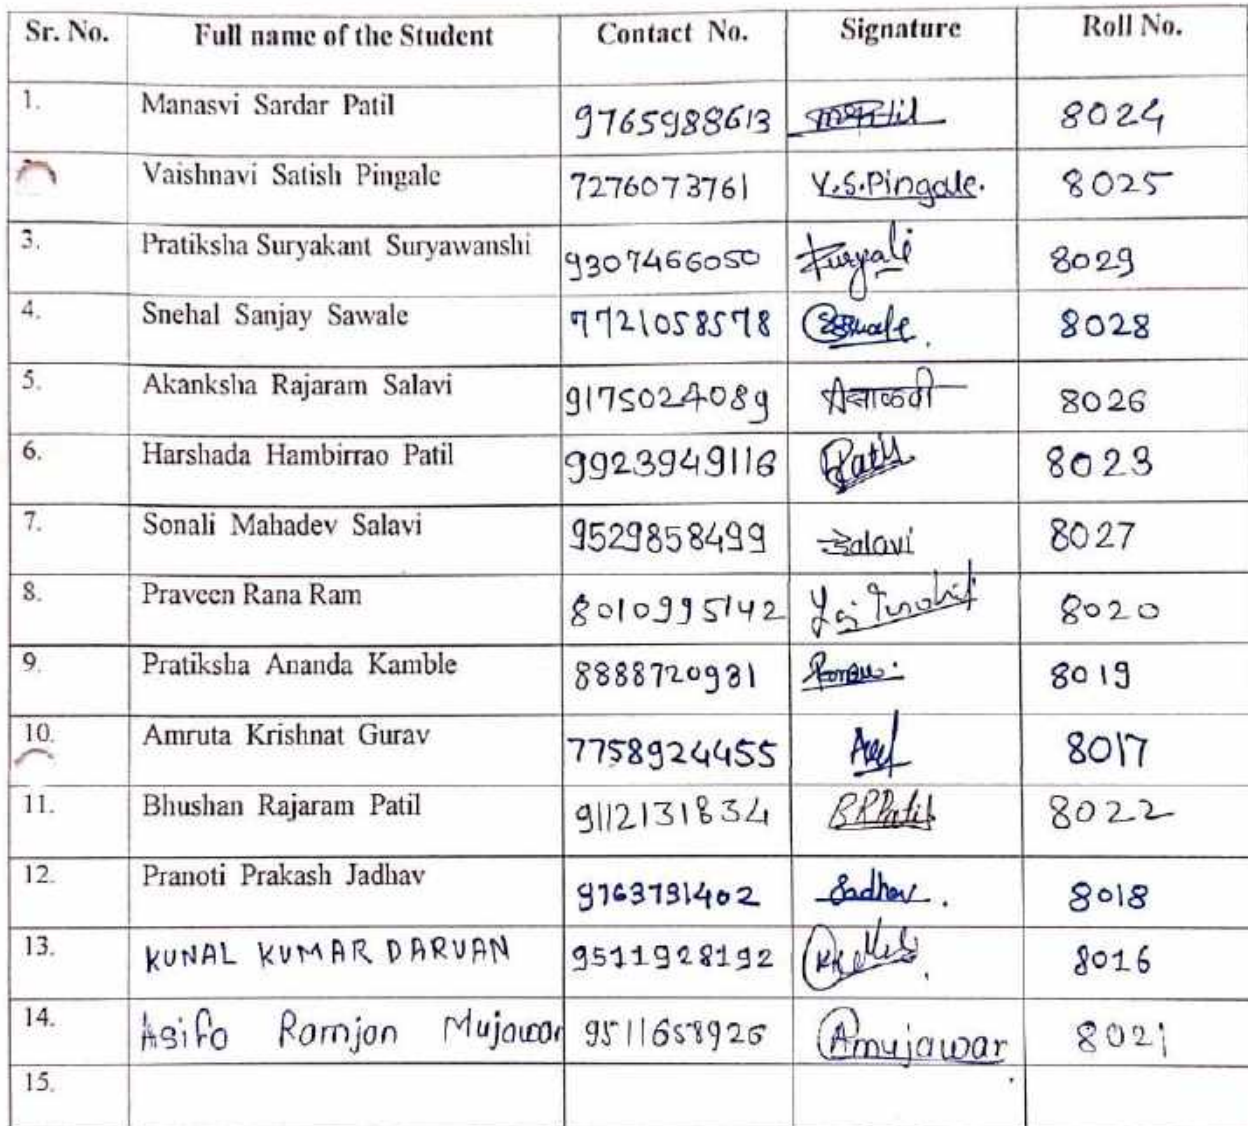 Sr. No. Full name of the Student Contact No. Signature Roll No.
1. Manasvi Sardar Patil 9765988613 8024
Vaishnavi Satish Pingale 7276073761 V.S.Pingale. 8025
3. Pratiksha Suryakant Suryawanshi 9307466050 8029
4. Snehal Sanjay Sawale 7721058578 8028
5. Akanksha Rajaram Salavi 9175024089 8026
6. Harshada Hambirrao Patil 9923949116 Patil 8023
7. Sonali Mahadev Salavi 9529858499 Salavi 8027
8. Praveen Rana Ram 8010995142 8020
9. Pratiksha Ananda Kamble 8888720931 8019
10. Amruta Krishnat Gurav 7758924455 8017
11. Bhushan Rajaram Patil 9112131834 BRPatil 8022
12. Pranoti Prakash Jadhav 9763791402 Jadhav. 8018
13. KUNAL KUMAR DARVAN 9511928192 8016
14. Asifa Ramjan Mujawar 9511658926 Amujawar 8021
15.